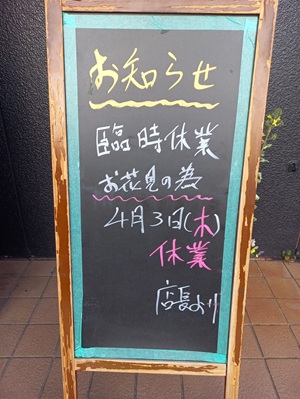 お知らせ
臨時休業
お花見の為
4月3日(木)
休業
店長より